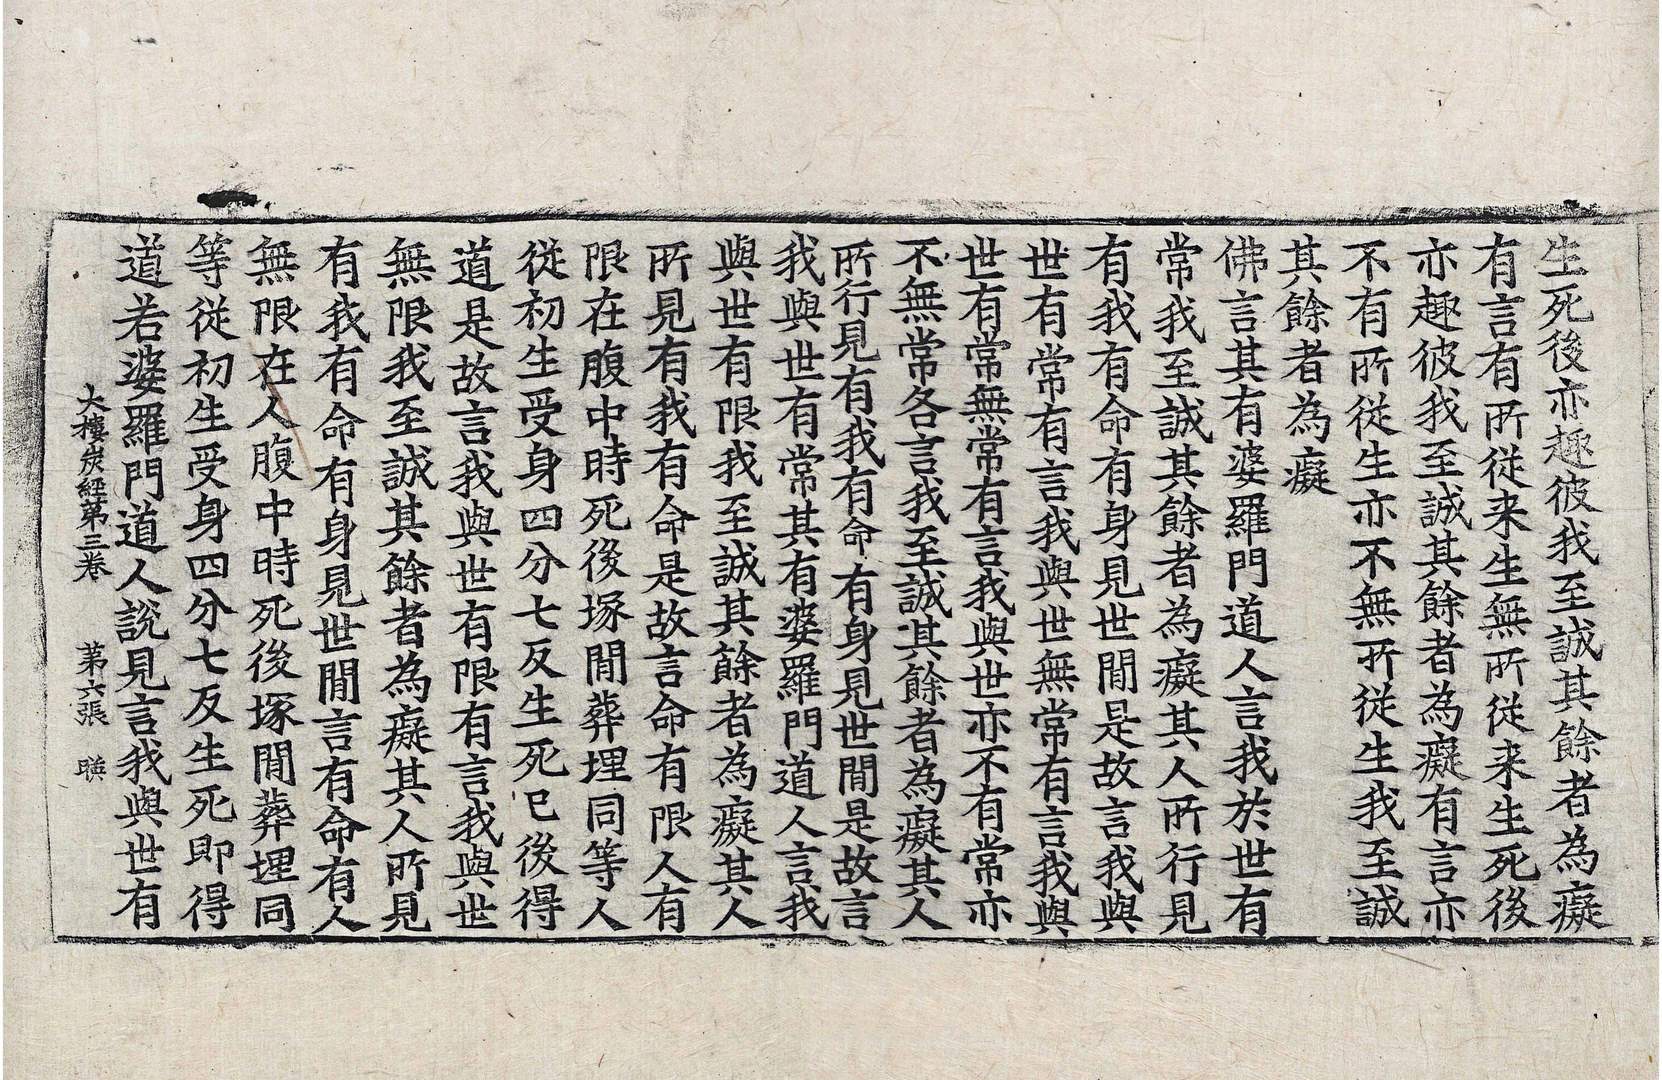 生死後亦趣彼我至誠其餘者為癡
有言有所從来生無所從来生死後
亦趣彼我至誠其餘者為癡有言亦
不有所從生亦不無所從生我至誠
其餘者為癡
佛言其有婆羅門道人言我於世有
常我至誠其餘者為癡其人所行見
有我有命有身見世間是故言我與
世有常有言我與世無常有言我與
世有常無常有言我與世亦不有常亦
不無常各言我至誠其餘者為癡其人
所行見有我有命有身見世間是故言
我與世有常其有婆羅門道人言我
與世有限我至誠其餘者為癡其人
所見有我有命是故言命有限人有
限在腹中時死後塚間葬埋同等人
從初生受身四分七反生死已後得
道是故言我與世有限有言我與世
無限我至誠其餘者為癡其人所見
有我有命有身見世間言有命有人
無限在人腹中時死後塚間葬埋同
等從初生受身四分七反生死即得
道若婆羅門道人說見言我與世有
大樓炭經第三卷 第六張